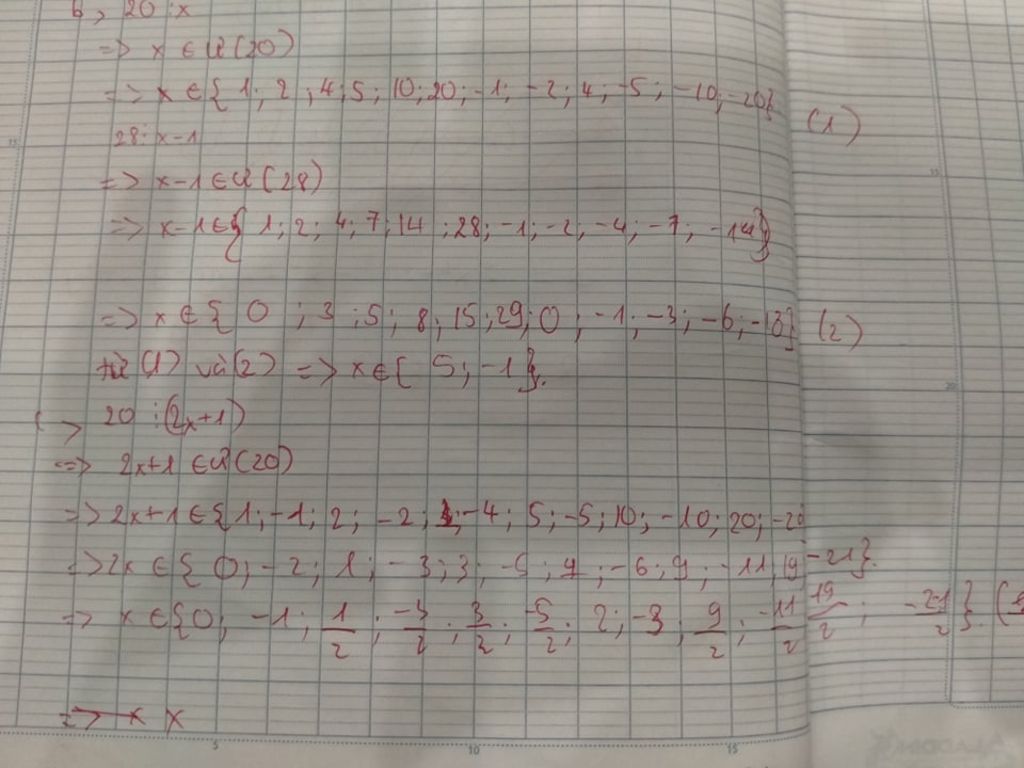 b, 20 ⋮ x
=> x ∈ Ư(20)
=> x ∈ { 1; 2; 4; 5; 10; 20; -1; -2; 4; -5; -10; -20} (1)
28 ⋮ x-1
=> x-1 ∈ Ư(28)
=> x-1 ∈ { 1; 2; 4; 7; 14; 28; -1; -2; -4; -7; -14}
=> x ∈ { 0; 3; 5; 8; 15; 29; 0; -1; -3; -6; -13} (2)
từ (1) và (2) => x ∈ { 5; -1}.
c, 20 ⋮ (2x+1)
=> 2x+1 ∈ Ư(20)
=> 2x+1 ∈ { 1; -1; 2; -2; 4; -4; 5; -5; 10; -10; 20; -20
=> 2x ∈ { 0; -2; 1; -3; 3; -5; 4; -6; 9; -11; 19 -21}.
=> x ∈ {0; -1; 1/2; -3/2; 3/2; -5/2; 2; -3; 9/2; -11/2 19/2; -21/2}. (
=> x x